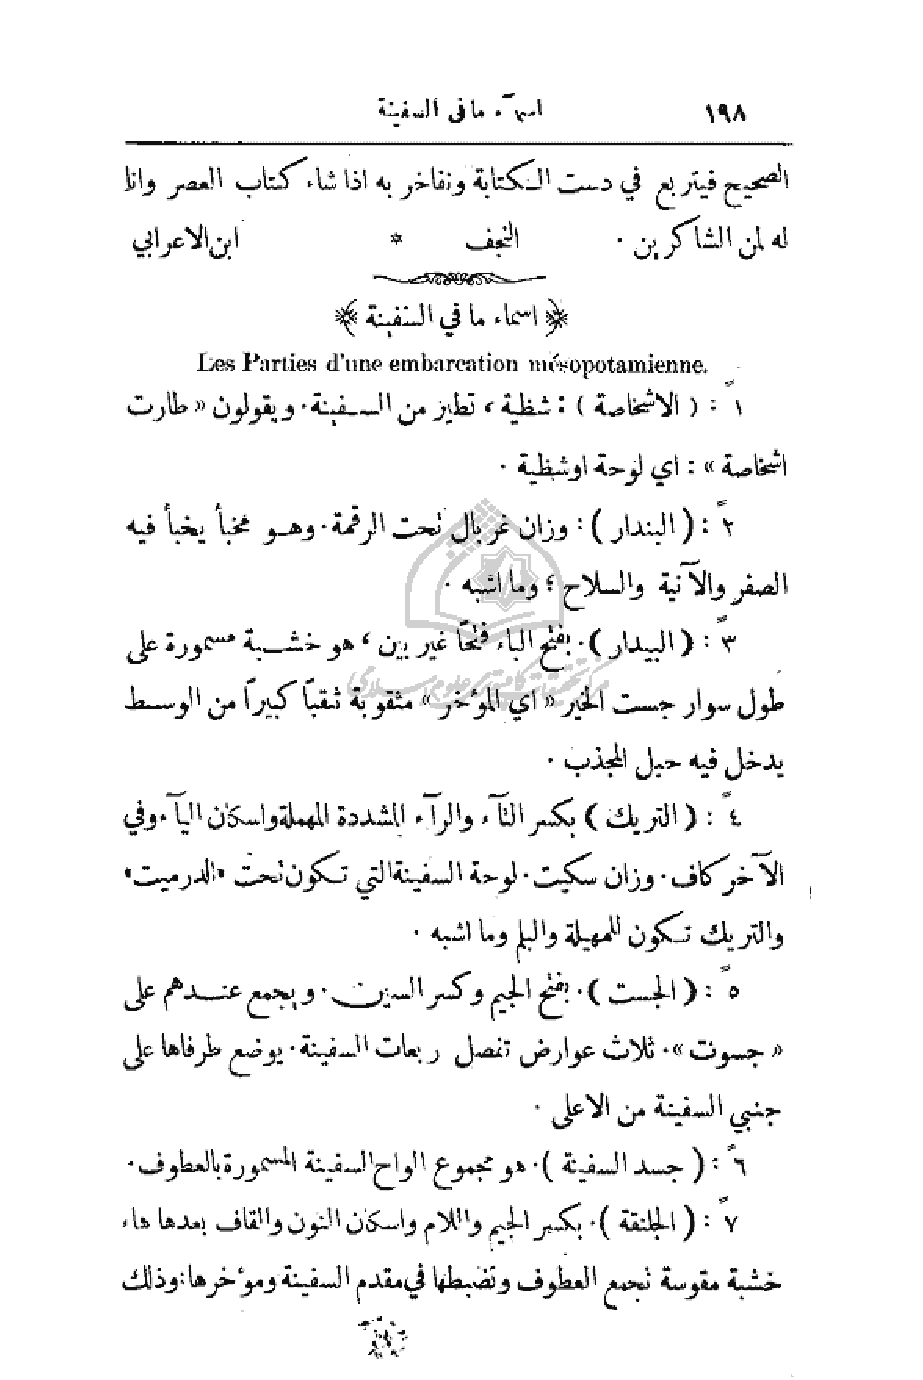 ١٩٨ اسمآء ما في السفينة
الصحيح فيتربع في دست الكتابة ونفاخر به اذا شاء كتاب العصر وانا
له لمن الشاكرين . النجف * ابن الاعرابي
﴿ اسماء ما في السفينة ﴾
Les Parties d'une embarcation mésopotamienne.
١ً : ( الاشخاصة ) : شظية ، تطير من السفينة . ويقولون « طارت
اشخاصة » : اي لوحة او شظية .
٢ً : ( البندار ) : وزان غربال تحت الرقمة . وهو مخبأ يخبأ فيه
الصفر والآنية والسلاح ؛ وما اشبه .
٣ً : ( البيدار ) . بفتح الباء فتحاً غير بين ، هو خشبة مسمورة على
طول سوار جست الخير « اي المؤخر » مثقوبة ثقباً كبيراً من الوسط
يدخل فيه حبل المجذب .
٤ً : ( التريك ) بكسر التآء والرآء المشددة المهملة واسكان اليآء وفي
الآخر كاف . وزان سكيت . لوحة السفينة التي تكون تحت «الدرميت»
والتريك تكون للمهيلة والبلم وما اشبه .
٥ً : ( الجست ) . بفتح الجيم وكسر السين . ويجمع عندهم على
« جسوت » . ثلاث عوارض تفصل ربعات السفينة . يوضع طرفاها على
جنبي السفينة من الاعلى .
٦ً : ( جسد السفينة ) . هو مجموع الواح السفينة المسمورة بالعطوف .
٧ً : ( الجلنقة ) . بكسر الجيم واللام واسكان النون والقاف بعدها هاء
خشبة مقوسة تجمع العطوف وتضبطها في مقدم السفينة ومؤخرها : وذلك